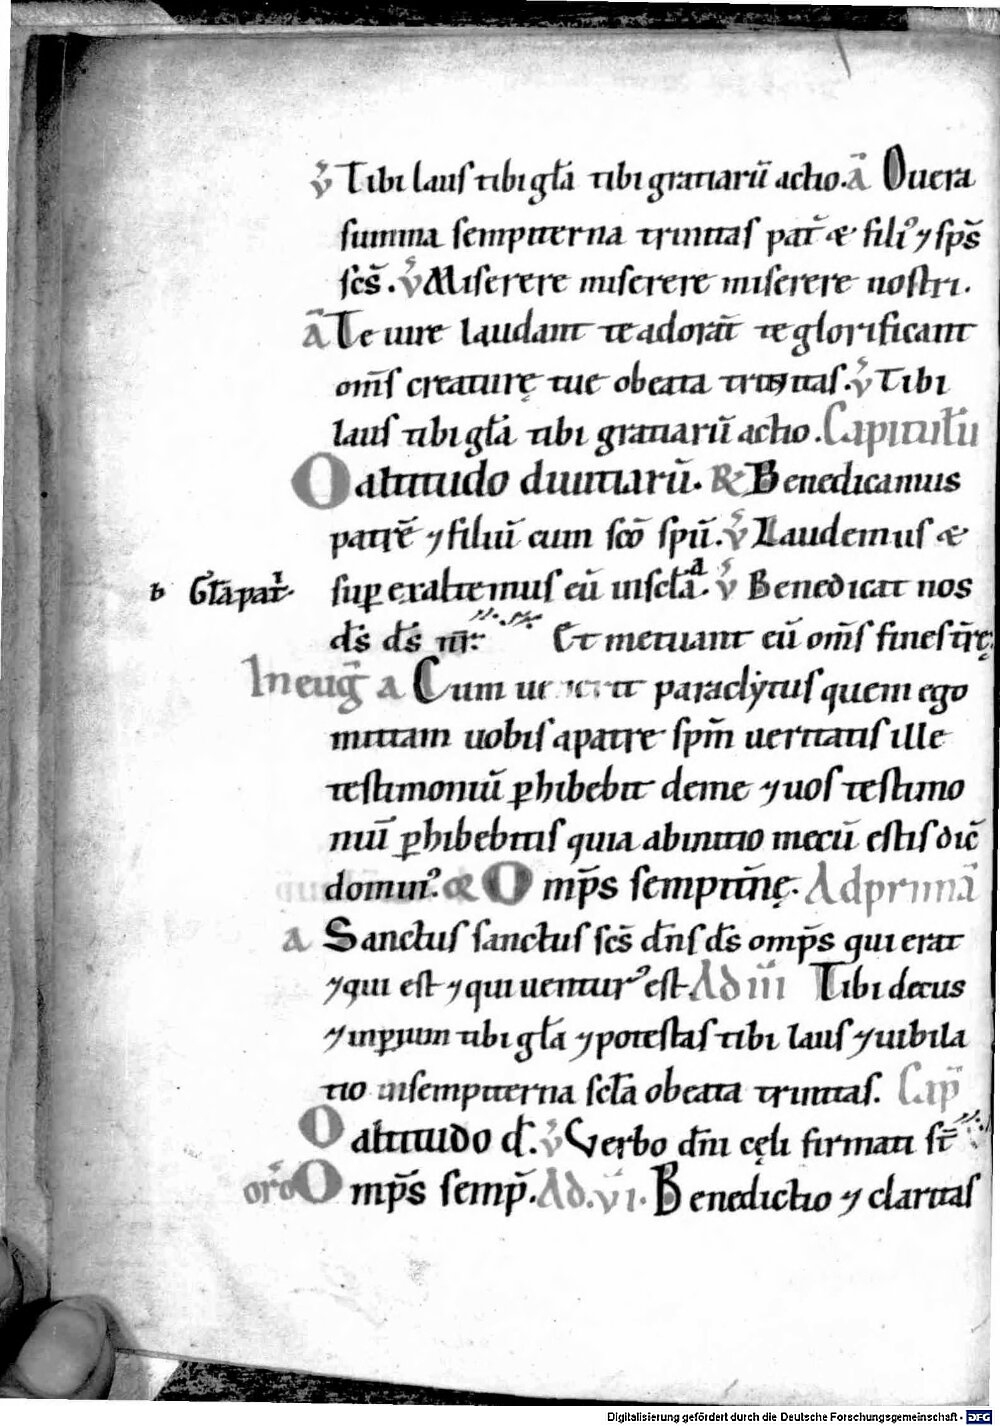 v̄ Tibi laus tibi gła tibi gratiarū actio. ā O uera
summa sempiterna trinitas pat̄ & fili⁹ ⁊ sp̄s
sc̄s. v̄ Miserere miserere miserere nostri.
ā Te iure laudant te adorāt te glorificant
om̄s creaturę tue o beata trinitas. v̄ Tibi
laus tibi gła tibi gratiarū actio. Capitułū
O altitudo diuitiarū. R Benedicamus
patrē ⁊ filiū cum scō spū. v̄ Laudemus &
b Głā pat̄. sup exaltemus eū in scła. a v̄ Benedicat nos
ds̄ ds̄ nr̄: Et metuant eū om̄s fines t̄rę
In euḡ a Cum uenerit paraclytus quem ego
mittam uobis a patre sp̄m ueritatis ille
testimoniū phibebit de me ⁊ uos testimo
niū phibebitis quia ab initio mecū estis dic̄
domin⁹. or̄ Omp̄s sempit̄nę. Ad primā
a Sanctus sanctus sc̄s dn̄s ds̄ omp̄s qui erat
⁊ qui est ⁊ qui uentur⁹ est. Ad iii Tibi decus
⁊ inpium tibi gła ⁊ potestas tibi laus ⁊ iubila
tio in sempiterna scła o beata trinitas. Cap̄
O altitudo d. v̄ Verbo dn̄i cęli firmati st̄
or̄o Omp̄s semp̄. Ad. vi. Benedictio ⁊ claritas
Digitalisierung gefördert durch die Deutsche Forschungsgemeinschaft - DFG